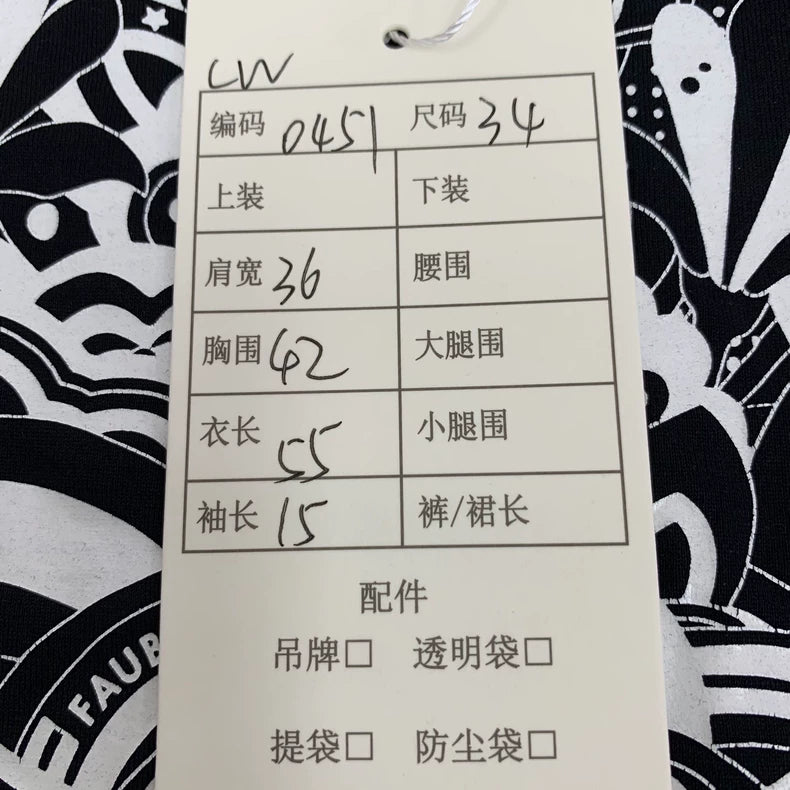 LW
编码 0451 尺码 34
上装 下装
肩宽 36 腰围
胸围 42 大腿围
衣长 55 小腿围
袖长 15 裤/裙长
配件
吊牌□ 透明袋□
提袋□ 防尘袋□
FAUB